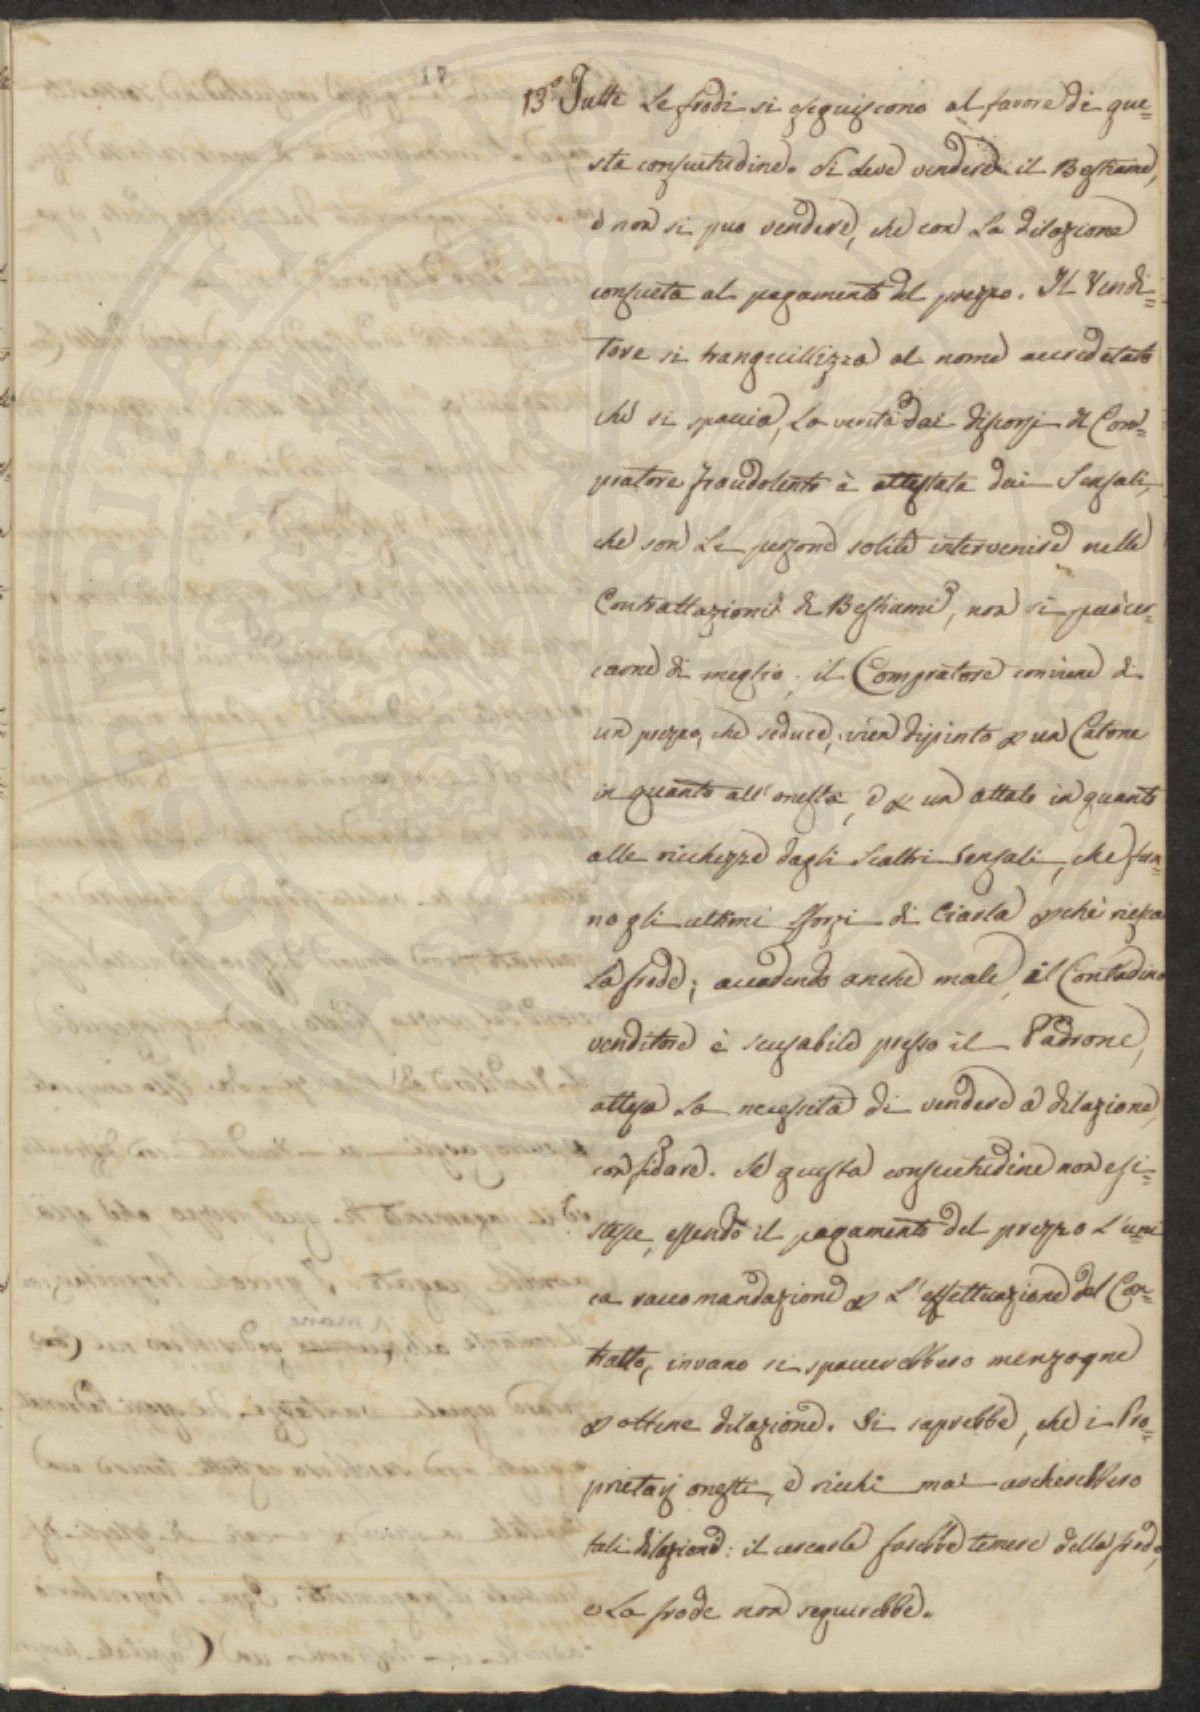 17
13.° Tutte le frodi si eseguiscono al favore di que=
sta consuetudine. Si deve vendere il Bestiame,
e non si può vendere, che con la dilazione
consueta al pagamento del prezzo. Il Vendi=
tore si tranquillizza al nome accreditato
che si spaccia, la verità dai discorsi del Com=
pratore fraudolento è attestata dai Sensali,
che son le persone solite intervenire nelle
Contrattazioni di Bestiami, non si può cer=
carne di meglio; il Compratore conviene di
un prezzo, che seduce, vien dipinto p un Catone
in quanto all'onestà, e p un Attalo in quanto
alle ricchezze dagli scaltri Sensali, che fan=
no gli ultimi sforzi di Ciarla pchè riesca
la frode; accadendo anche male, il Contadino
venditore è scusabile presso il Padrone,
attesa la necessità di vendere a dilazione,
con fidare. Se questa consuetudine non esi=
stesse, essendo il pagamento del prezzo l'uni
ca raccomandazione p l'effettuazione del Con=
tratto, invano si spaccerebbero menzogne
p ottene dilazione. Si saprebbe, che i Pro=
prietarj onesti, e ricchi mai cercherebbero
tali dilazioni: il cercarle farebbe temere della frode,
e la frode non seguirebbe.